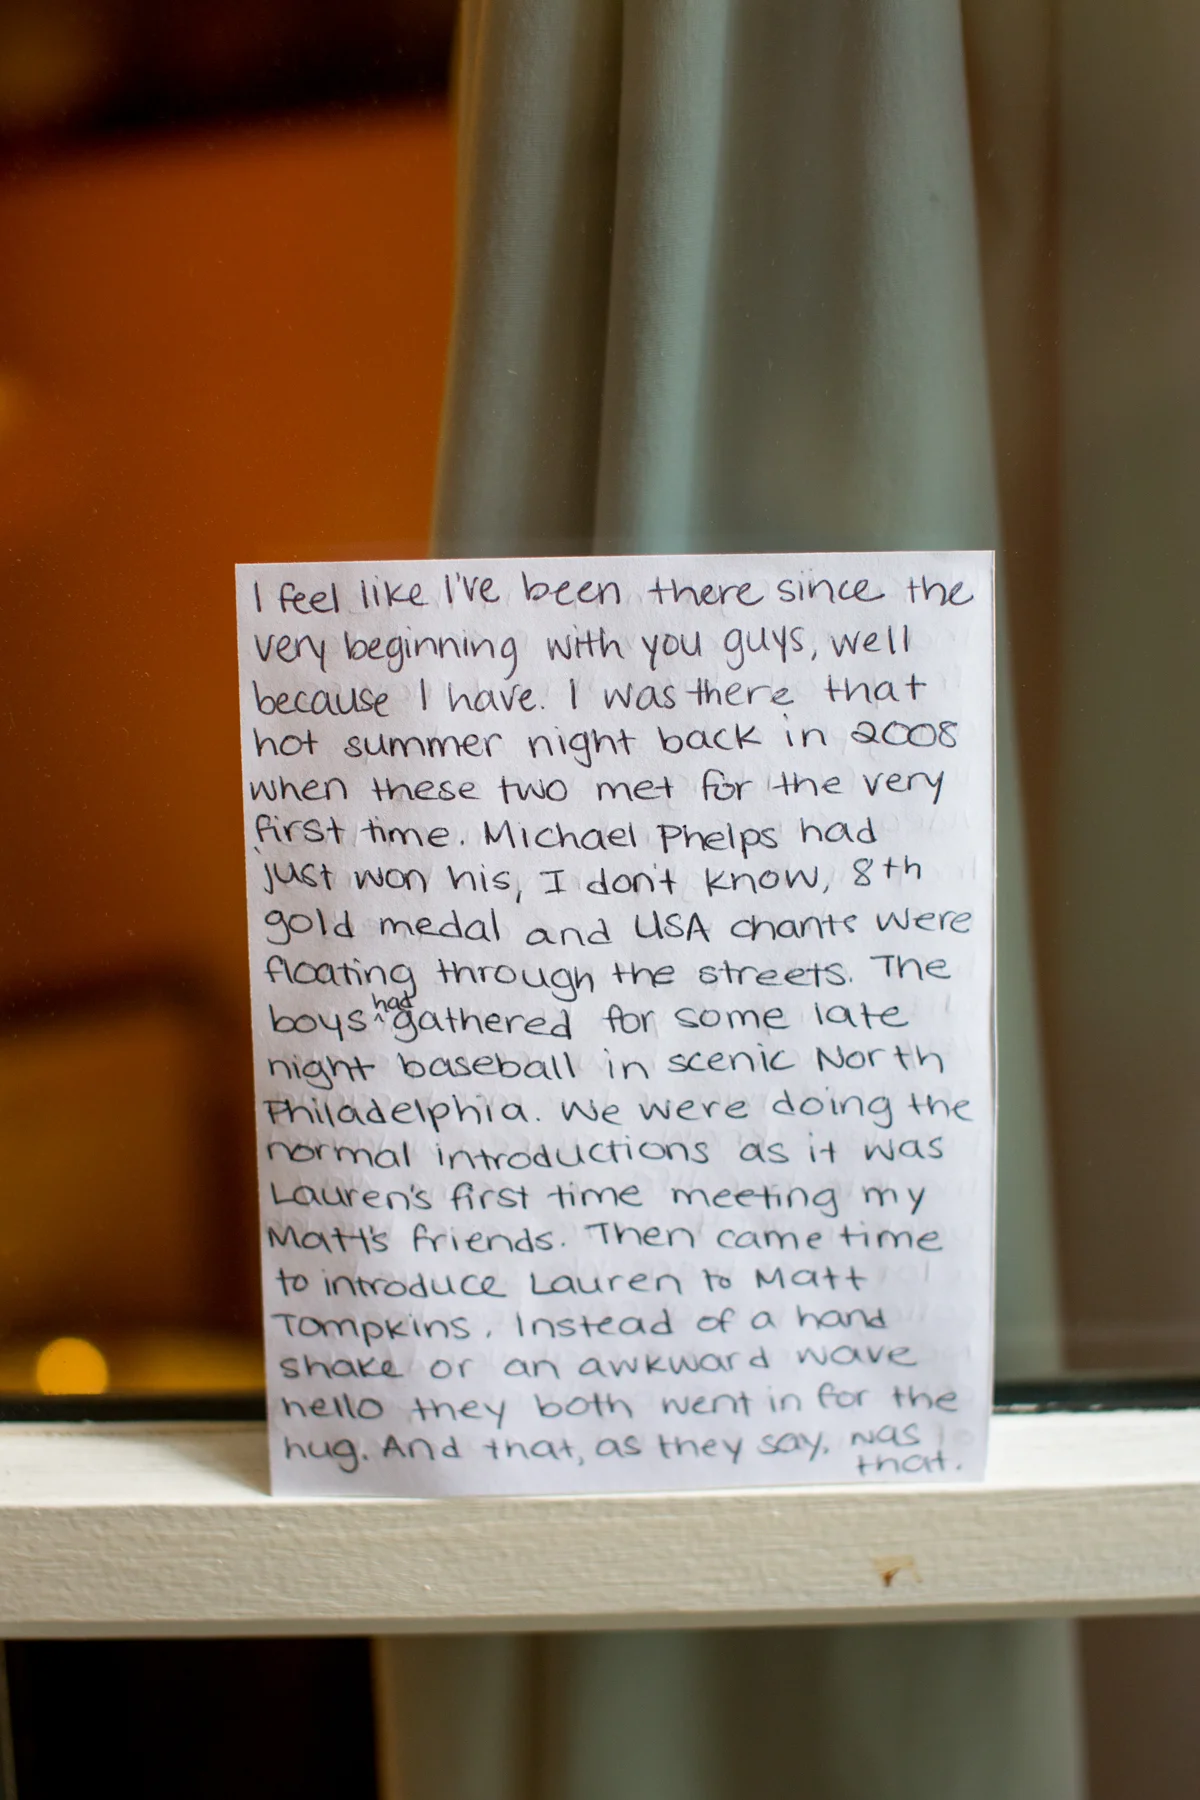 I feel like I've been there since the
very beginning with you guys, well
because I have. I was there that
hot summer night back in 2008
when these two met for the very
first time. Michael Phelps had
just won his, I don't know, 8th
gold medal and USA chants were
floating through the streets. The
boys ^had gathered for some late
night baseball in scenic North
Philadelphia. We were doing the
normal introductions as it was
Lauren's first time meeting my
Matt's friends. Then came time
to introduce Lauren to Matt
Tompkins. Instead of a hand
shake or an awkward wave
hello they both went in for the
hug. And that, as they say, was
that.